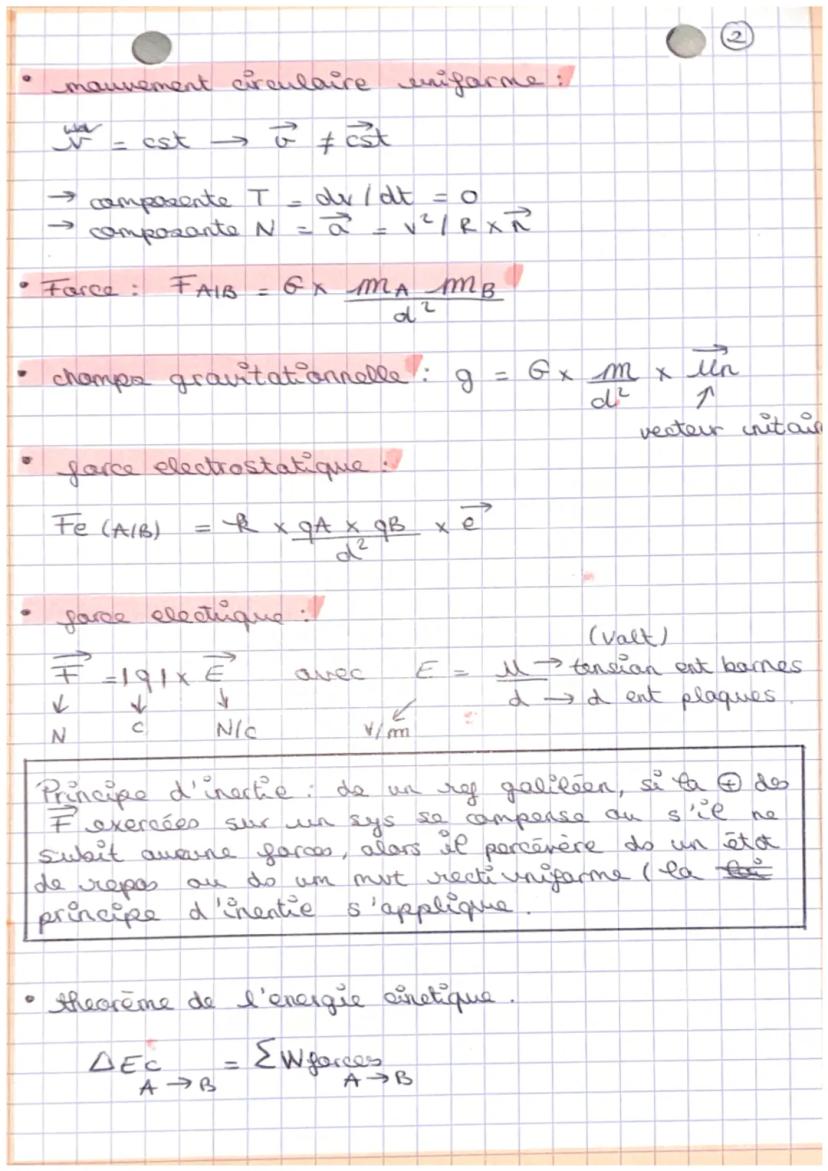 2
• mouvement circulaire uniforme :
v = cst → v⃗ ≠ cst⃗
→ composente T = dv / dt = 0
→ composante N = a⃗ = v² / R × n⃗
• Force : F A/B = G × mA mB / d²
• champs gravitationnelle : g = G × m / d² × un⃗
↑
vecteur unitair
• force electrostatique :
Fe (A/B) = k × qA × qB / d² × e⃗
• force electrique :
(Volt)
F⃗ = |q| × E⃗ avec E = u → tension ent bornes
d → d ent plaques
N C N/C V/m
Principe d'inertie : ds un ref galiléen, si la ⊕ des
F⃗ exercées sur un sys se compense ou s'il ne
subit aucune forces, alors il percévère ds un état
de repos ou ds um mvt recti uniforme ( la
principe d'inertie s'applique.
• theorème de l'energie cinetique.
ΔEc A → B = Σ W forces A → B